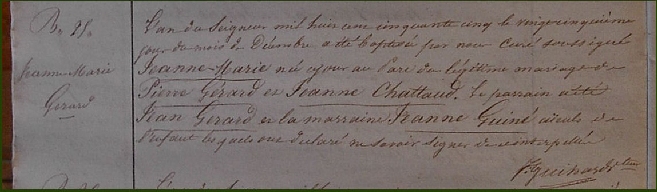 B. 25.
Jeanne-Marie
Gerard
L'an du Seigneur mil huit cent cinquante cinq le vingt cinquième
jour du mois de Décembre a été baptisée par nous curé soussigné
Jeanne-Marie née ce jour au Parc du légitime mariage de
Pierre Gerard et Jeanne Chattaud. Le parrain a été
Jean Gerard et la marraine Jeanne Guiné aieuls de
l'enfant lesquels ont déclaré ne savoir signer de ce interpellés